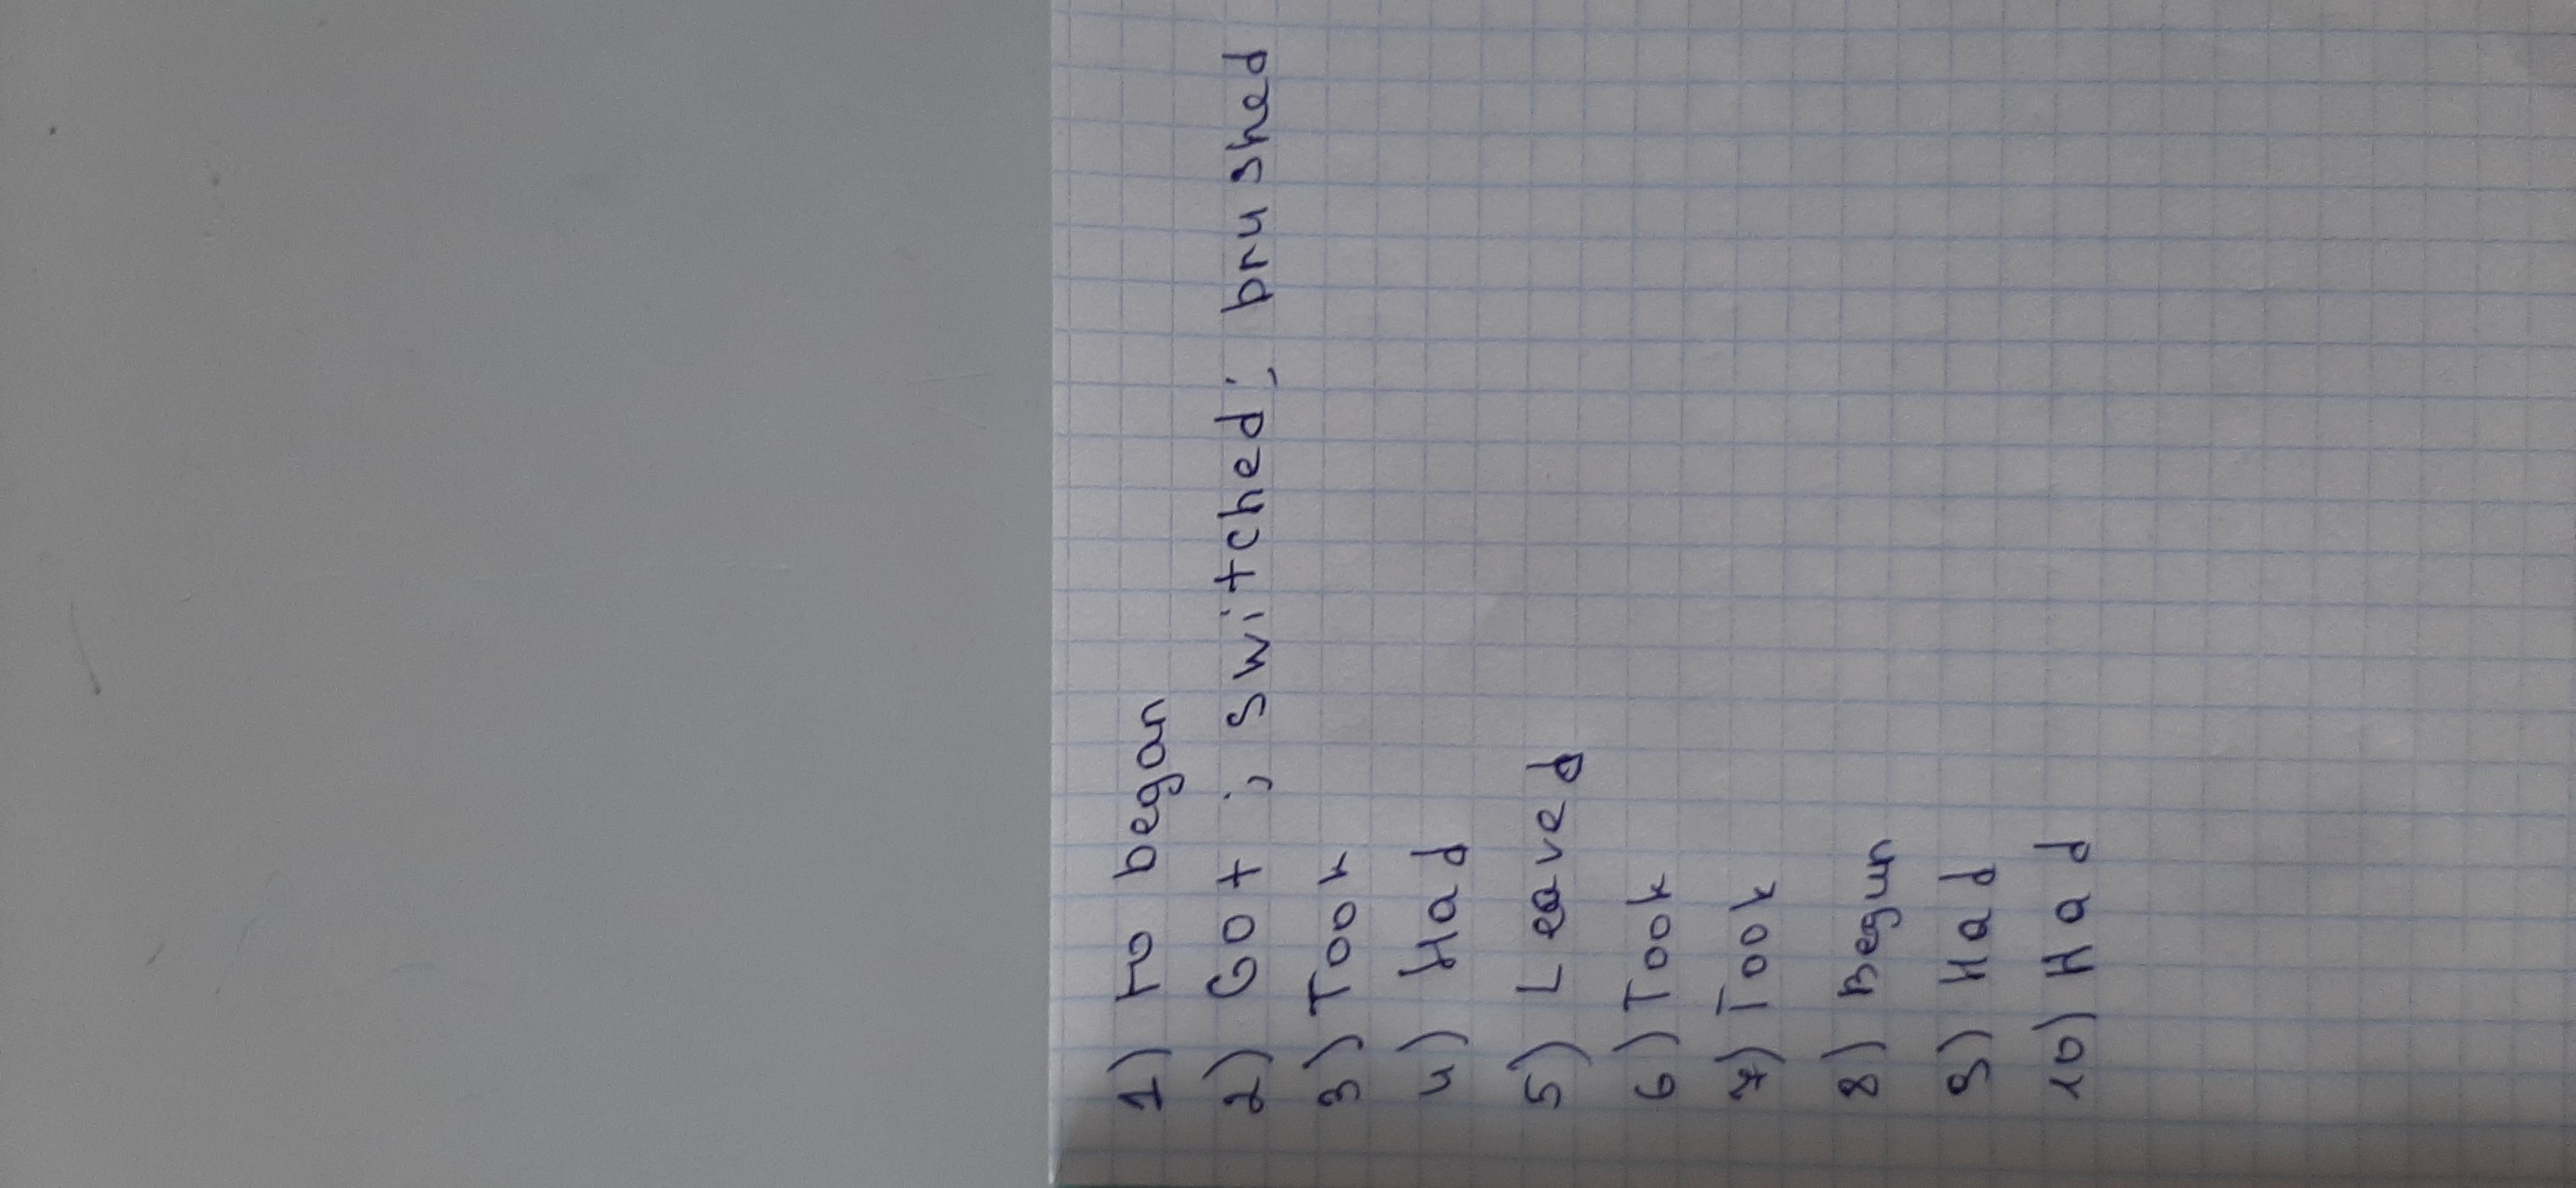 1) to began
2) Got ; switched; brushed
3) Took
4) Had
5) Leaved
6) Took
7) Took
8) Begun
9) Had
10) Had